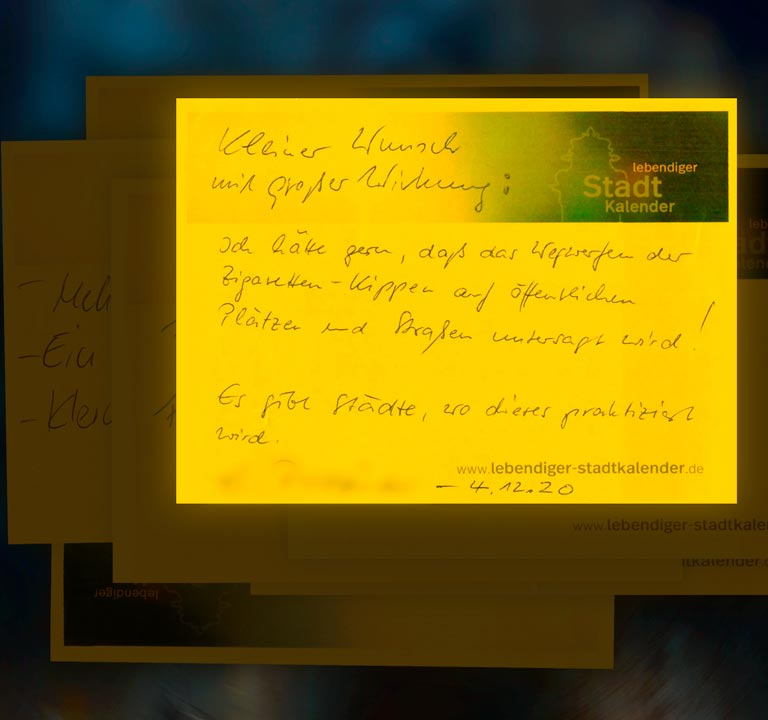 Kleiner Wunsch
mit großer Wirkung:
lebendiger
Stadt
Kalender
Ich hätte gern, daß das Wegwerfen der
Zigaretten-Kippen auf öffentlichen
Plätzen und Straßen untersagt wird!
Es gibt Städte, wo dieses praktiziert
wird.
www.lebendiger-stadtkalender.de
- 4.12.20
- Meh
- Ein
- Klei
www.lebendiger-stadtkalen
tkalender.d
lebendiger